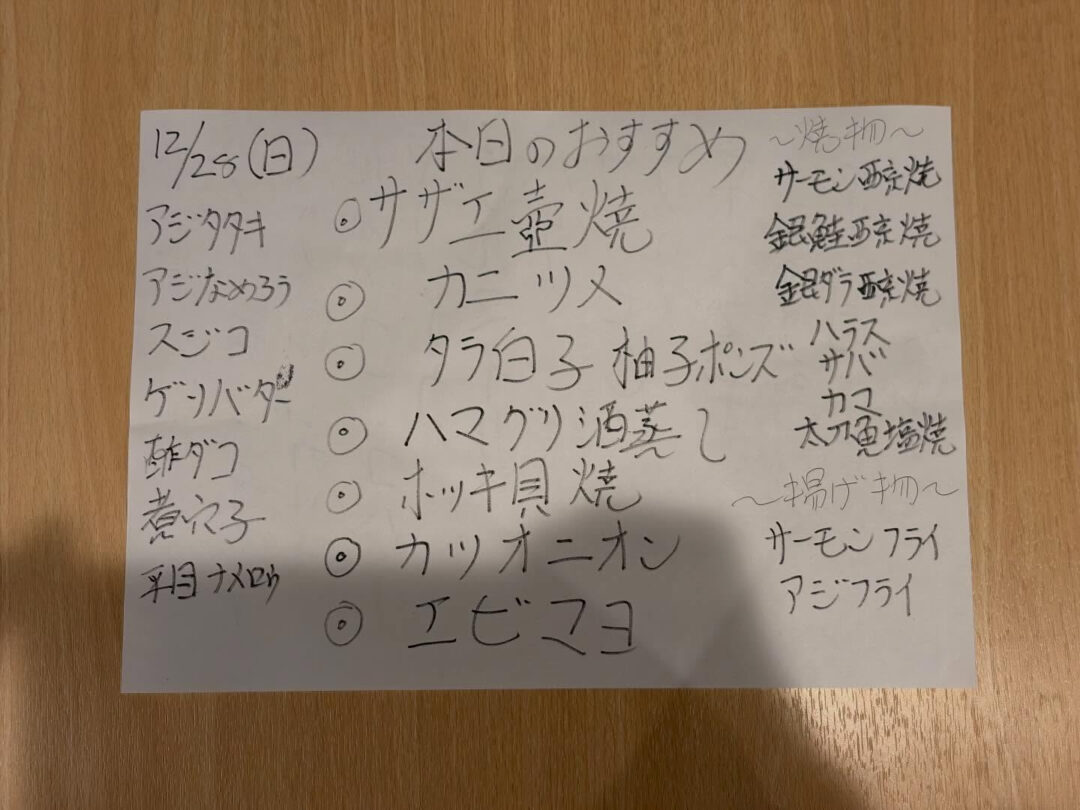 12/28(日)
アジタタキ
アジなめろう
スジコ
ゲソバター
酢ダコ
煮穴子
平目ナメロウ
本日のおすすめ
◎サザエ壺焼
◎カニツメ
◎タラ白子 柚子ポンズ
◎ハマグリ酒蒸し
◎ホッキ貝焼
◎カツオニオン
◎エビマヨ
～焼物～
サーモン西京焼
銀鮭西京焼
銀ダラ西京焼
ハラス
サバ
カマ
太刀魚塩焼
～揚げ物～
サーモンフライ
アジフライ